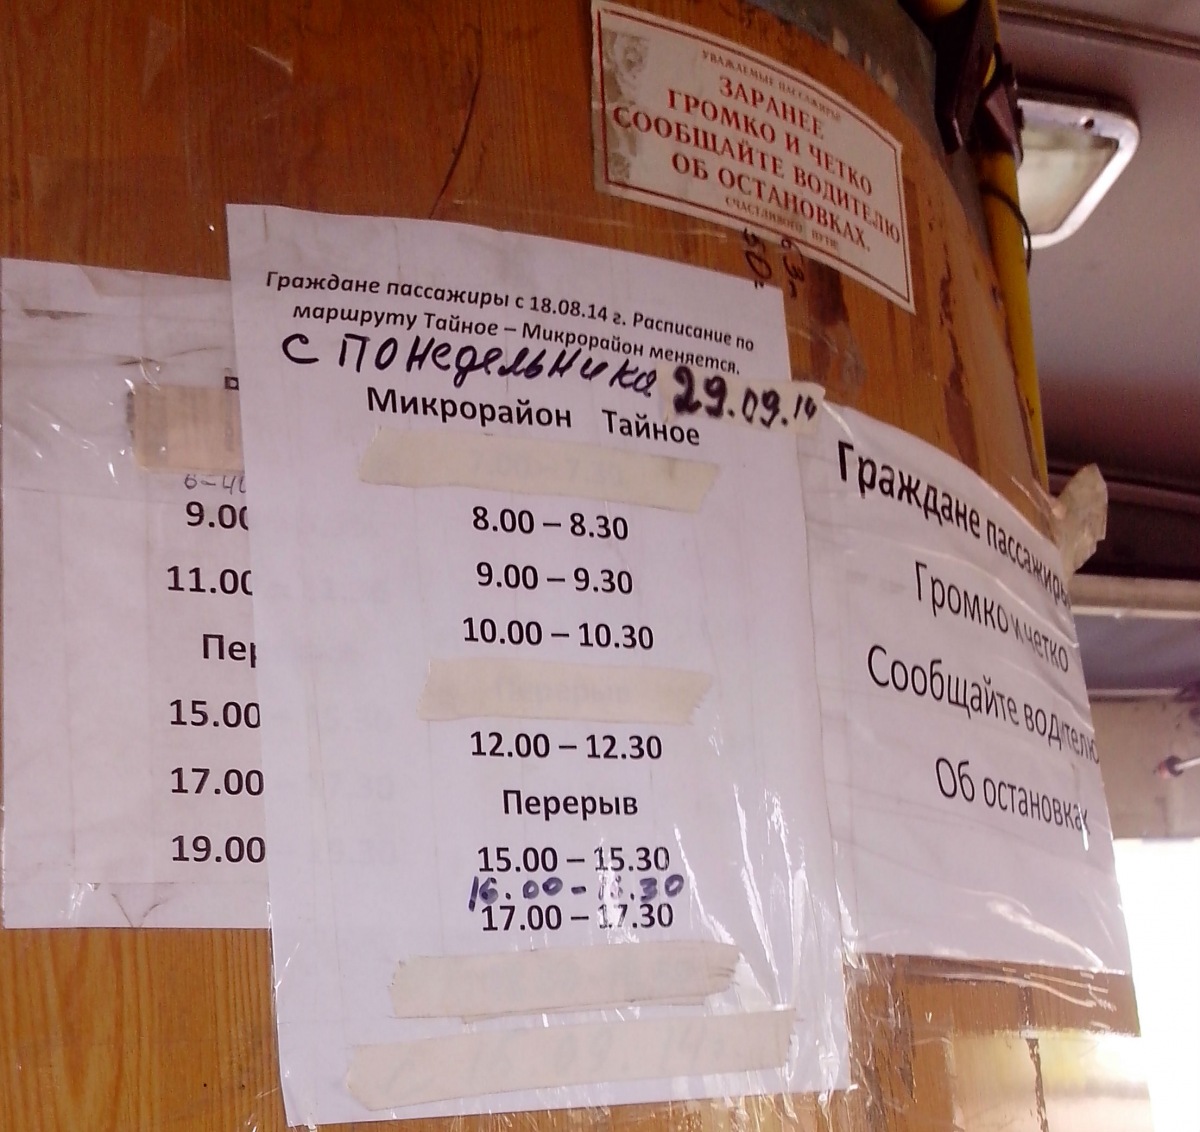 УВАЖАЕМЫЕ ПАССАЖИРЫ!
ЗАРАНЕЕ
ГРОМКО И ЧЕТКО
СООБЩАЙТЕ ВОДИТЕЛЮ
ОБ ОСТАНОВКАХ.
СЧАСТЛИВОГО ПУТИ
Граждане пассажиры с 18.08.14 г. Расписание по
маршруту Тайное – Микрорайон меняется.
с понедельника 29.09.14
Микрорайон Тайное
8.00 – 8.30
9.00 – 9.30
10.00 – 10.30
Перерыв
12.00 – 12.30
Перерыв
15.00 – 15.30
16.00 - 16.30
17.00 – 17.30
с 16.09.14г.
6-40
9.00
11.00
Пер
15.00
17.00
19.00
Граждане пассажиры
Громко и четко
Сообщайте водителю
Об остановках